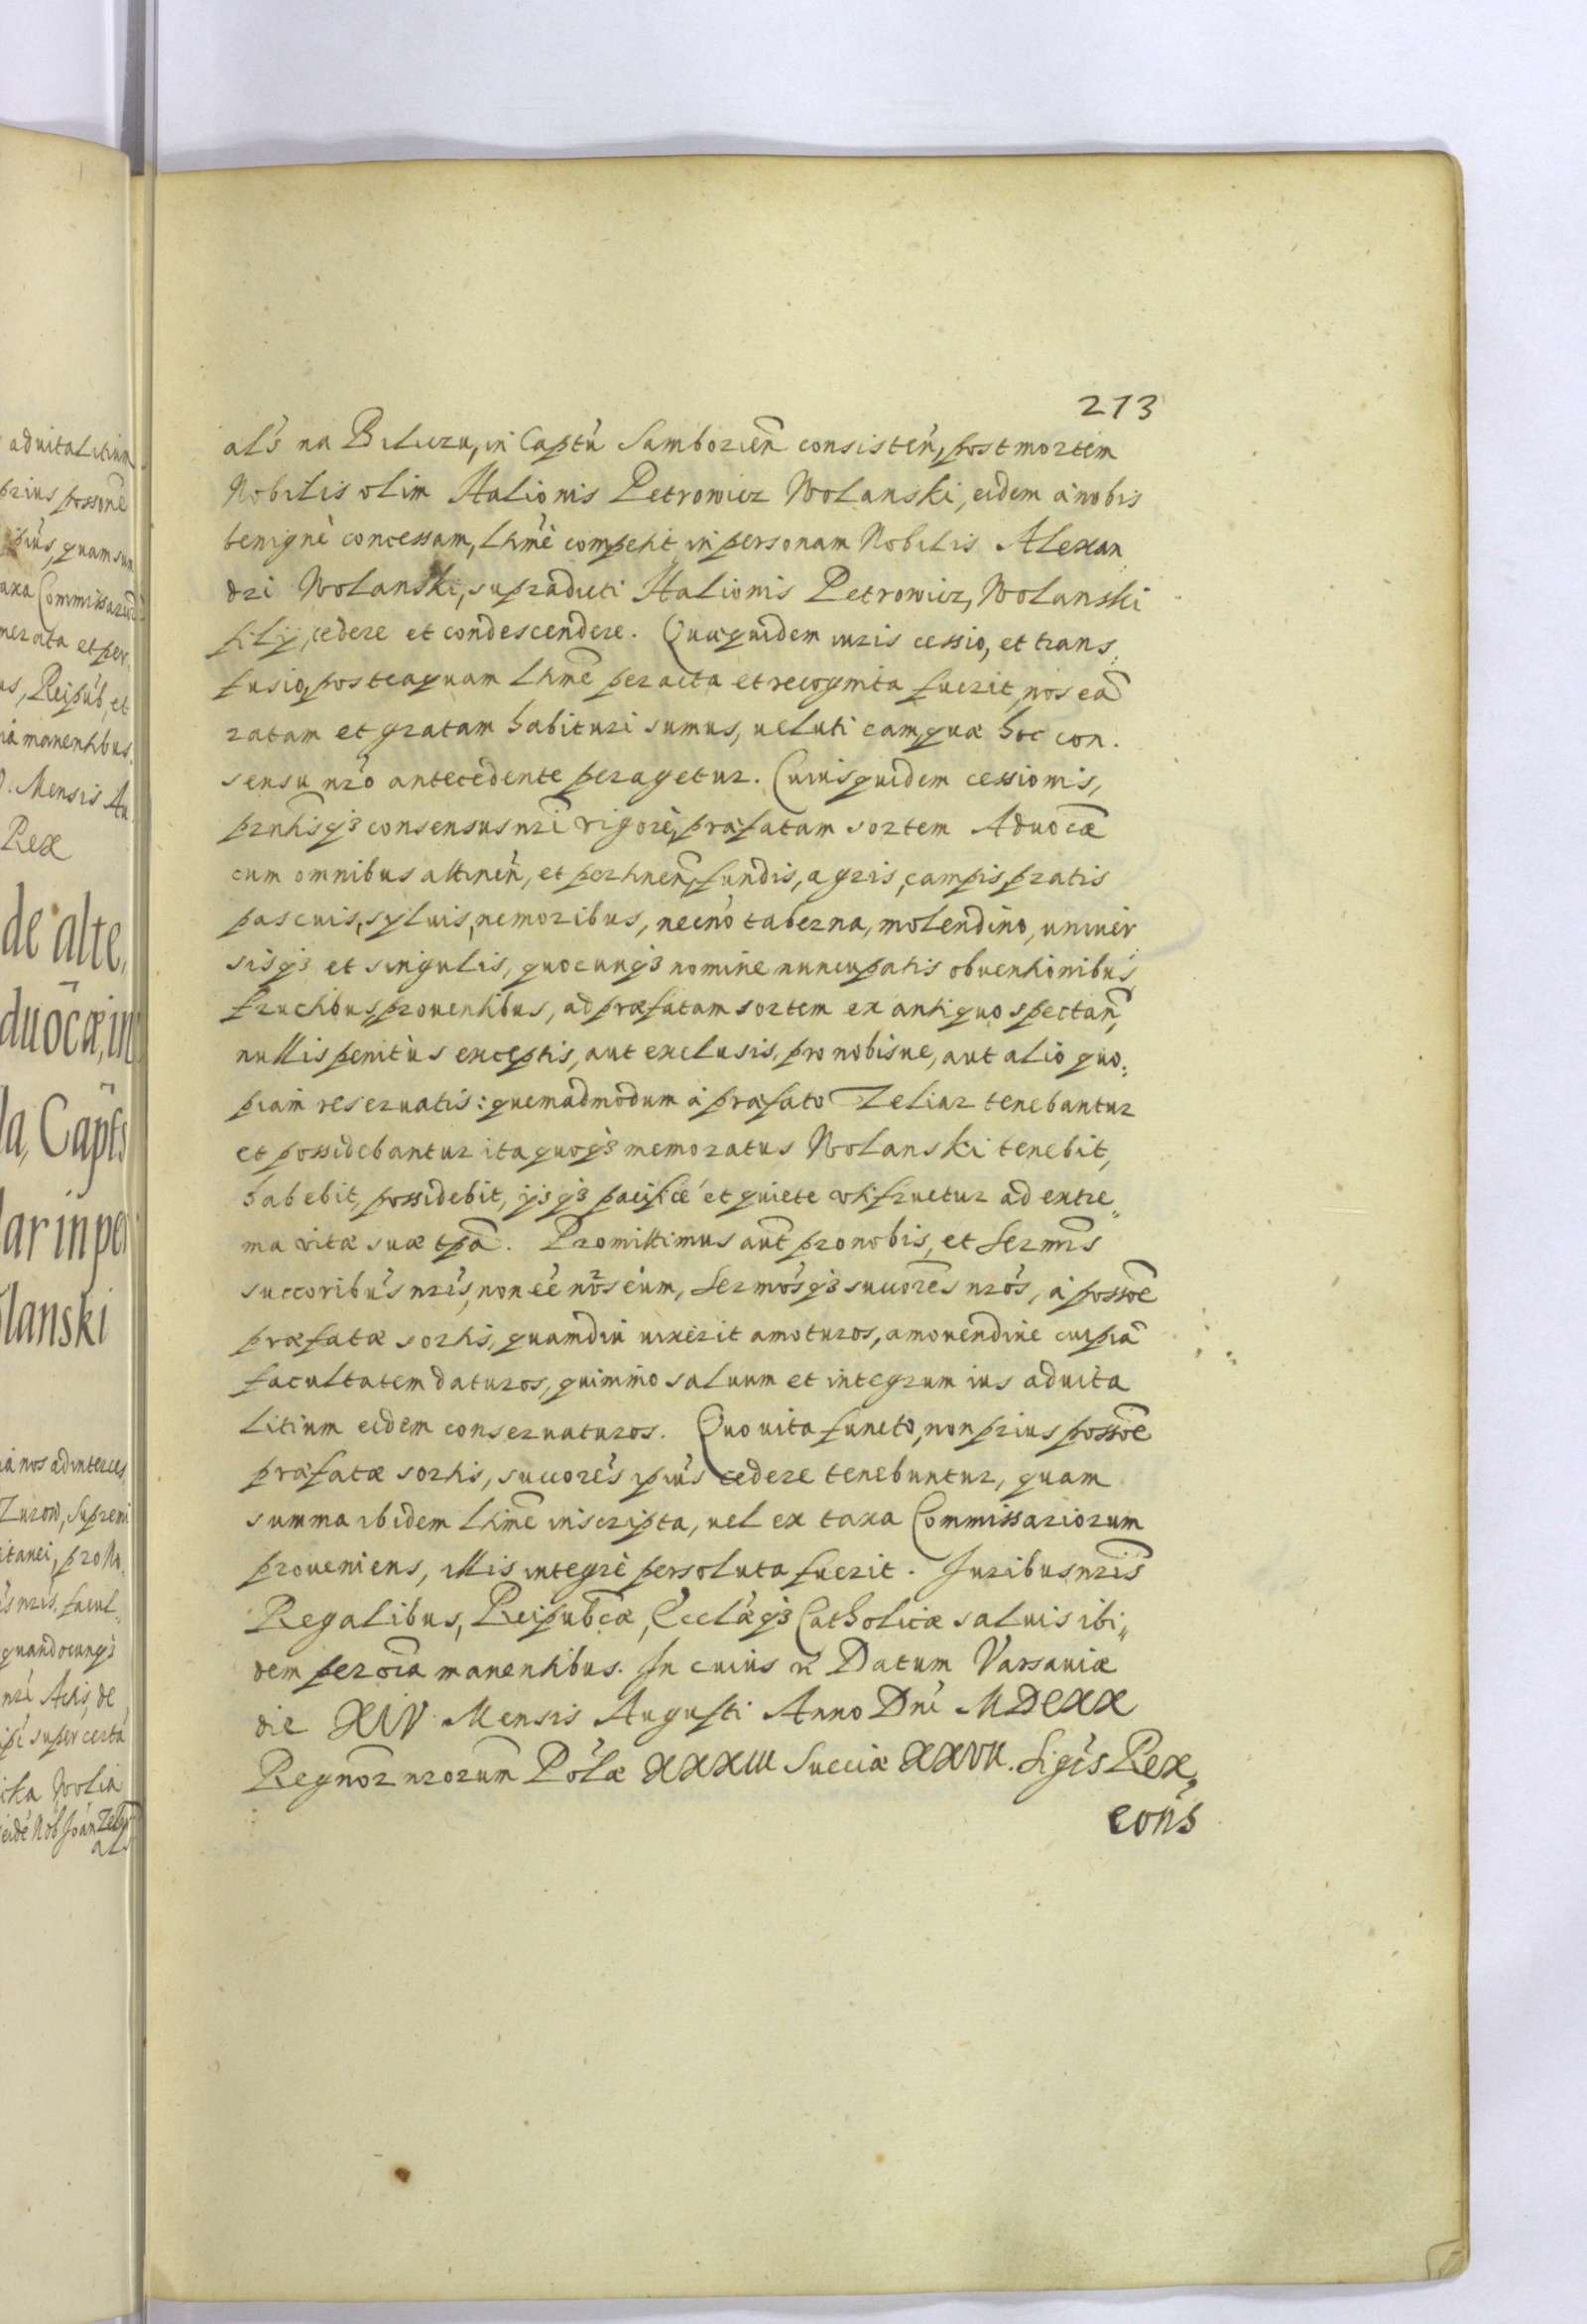 213
al's na Biliczu, in Captu Samborien consisten, post mortem
Nobilis olim Stalionis Petrowicz Wolanski, eidem à nobis
benignè concessam, lhmè competit in personam Nobilis Alexan
dri Wolanski, supradicti Stalionis Petrowicz, Wolanski
filij, cedere et condescendere. Quaequidem iuris cessio, et trans,
fusio, posteaquam lhmè peracta et recognita fuerit, nos eã
ratam et gratam habituri sumus, veluti eam, quae hoc con.
sensu nr̃o antecedente peragetur. Cuiusquidem cessionis,
prn̄tisq3 consensus nr̃i vigore, praefatam sortem Aduocae
cum omnibus attinen, et pertinen, fundis, agris, campis, pratis
pascuis, syluis, nemoribus, necno taberna, molendino, univer
sisq3 et singulis, quocunq3 nomine nuncupatis obuentionibus
fructibus, prouentibus, ad praefatam sortem ex antiquo spectan,
nullis penitùs exceptis, aut exclusis, pro nobisue, aut alio quo,
piam reseruatis: quemadmodum à praefato Zeliar tenebantur
et possidebantur ita quoq3 memoratus Wolanski tenebit,
habebit, possidebit, ijsq3 pacificè et quiete utifruetur ad extre,,
ma vitae suae tpã. Promittimus aut pro nobis, et Serm̃is
succoribus nr̃is, non eẽ nos eum, Sermosq3 succores nr̃os, à possoẽ
praefatae sortis, quamdiu uixerit amoturos, amouendiue cuipiã
facultatem daturos, quimmo saluum et integrum ius aduita
litium eidem conseruaturos. Quo uita functo, non prius possoẽ
praefatae sortis, succores ipius cedere tenebuntur, quam
summa ibidem lhmè inscripta, uel ex taxa Commissariorum
proueniens, illis integrè persoluta fuerit. Juribus nr̃is
Regalibus, Reipubcae, Ecclaeq3 Catholicae saluis ibi,,
dem per oĩa manentibus. In cuius r̃ Datum Varsauiae
die XIV Mensis Augusti Anno Dni MDCXX
Regnor nrorum Polae XXXIII Sueciae XXVII. Sigis Rex,
cons
aduitalitium
prius possonẽ
ipius, quam sum
axa Commissariorũ
merata et per,
us, Reipub, et
ia manentibus.
Mensis Au
Rex
de alte,
duocae, in
la, Capts
lar in per
olanski
ia nos ad interces,
Zurow, Supremi
itanei, pro No,
is nris, facul,
quandocunq3
nri Actis, de
ipi super certa
icka Wolia
eidẽ Nob Joan Zeliar
al's